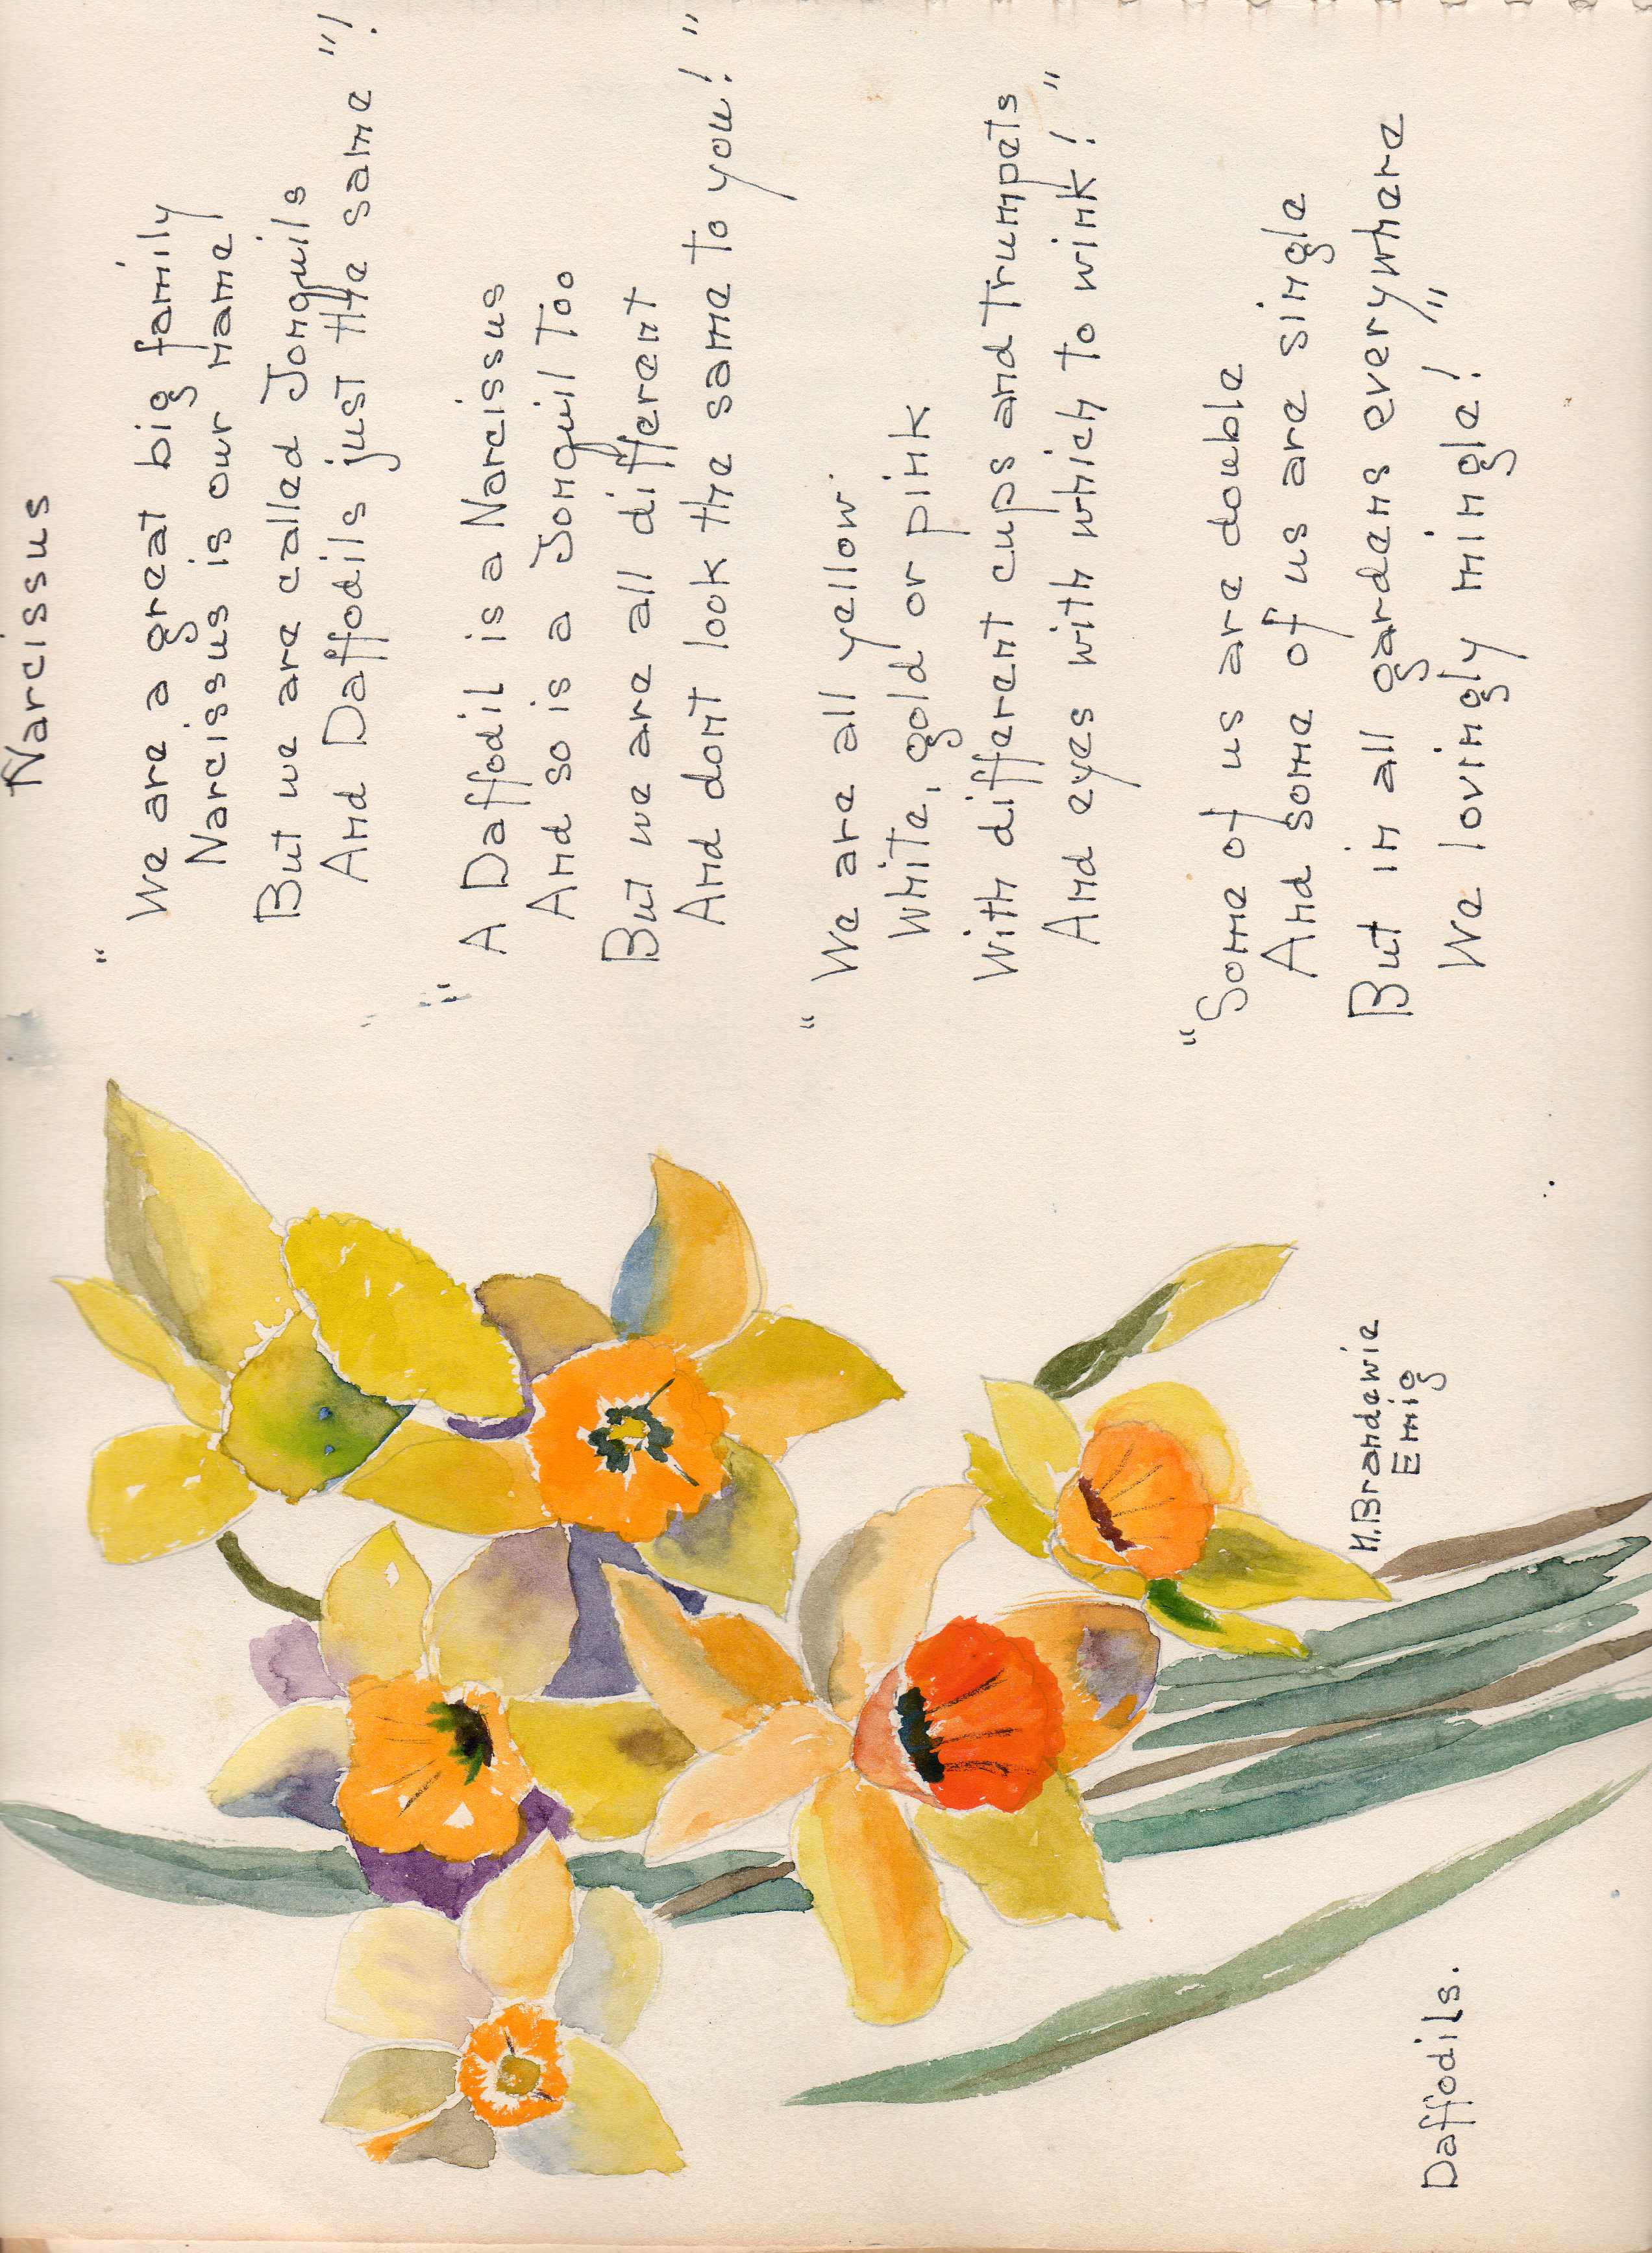 Narcissus
" We are a great big family
Narcissus is our name!
But we are called Jonquils
And Daffodils just the same "!
" A Daffodil is a Narcissus
And so is a Jonquil too
But we are all different
And dont look the same to you! "
" We are all yellow
White, gold or pink
With different cups and trumpets
And eyes with which to wink! "
"Some of us are double
And some of us are single
But in all gardens everywhere
We lovingly mingle! "
H.Brandewie
Emig
Daffodils.